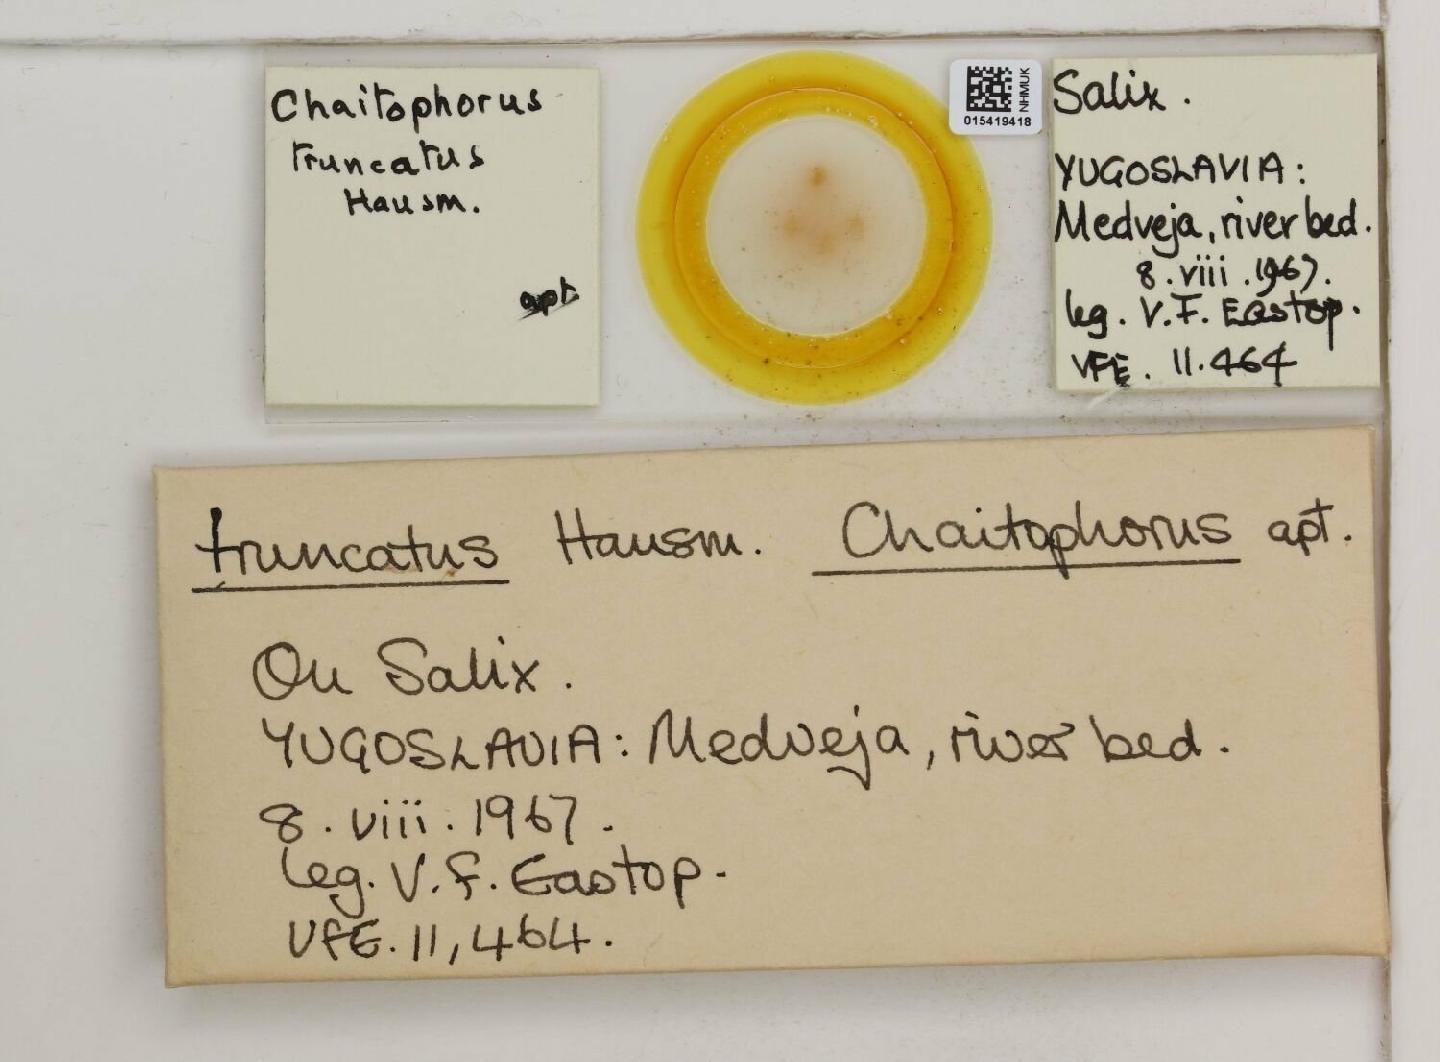 Chaitophorus
truncatus
Hausm.
apt.
NHMUK
015419418
Salix.
YUGOSLAVIA:
Medveja, river bed.
8.viii.1967.
leg. V.F. Eastop.
VFE. 11.464
truncatus Hausm. Chaitophorus apt.
On Salix.
YUGOSLAVIA: Medveja, river bed.
8.viii.1967.
leg. V.F. Eastop.
VFE.11,464.